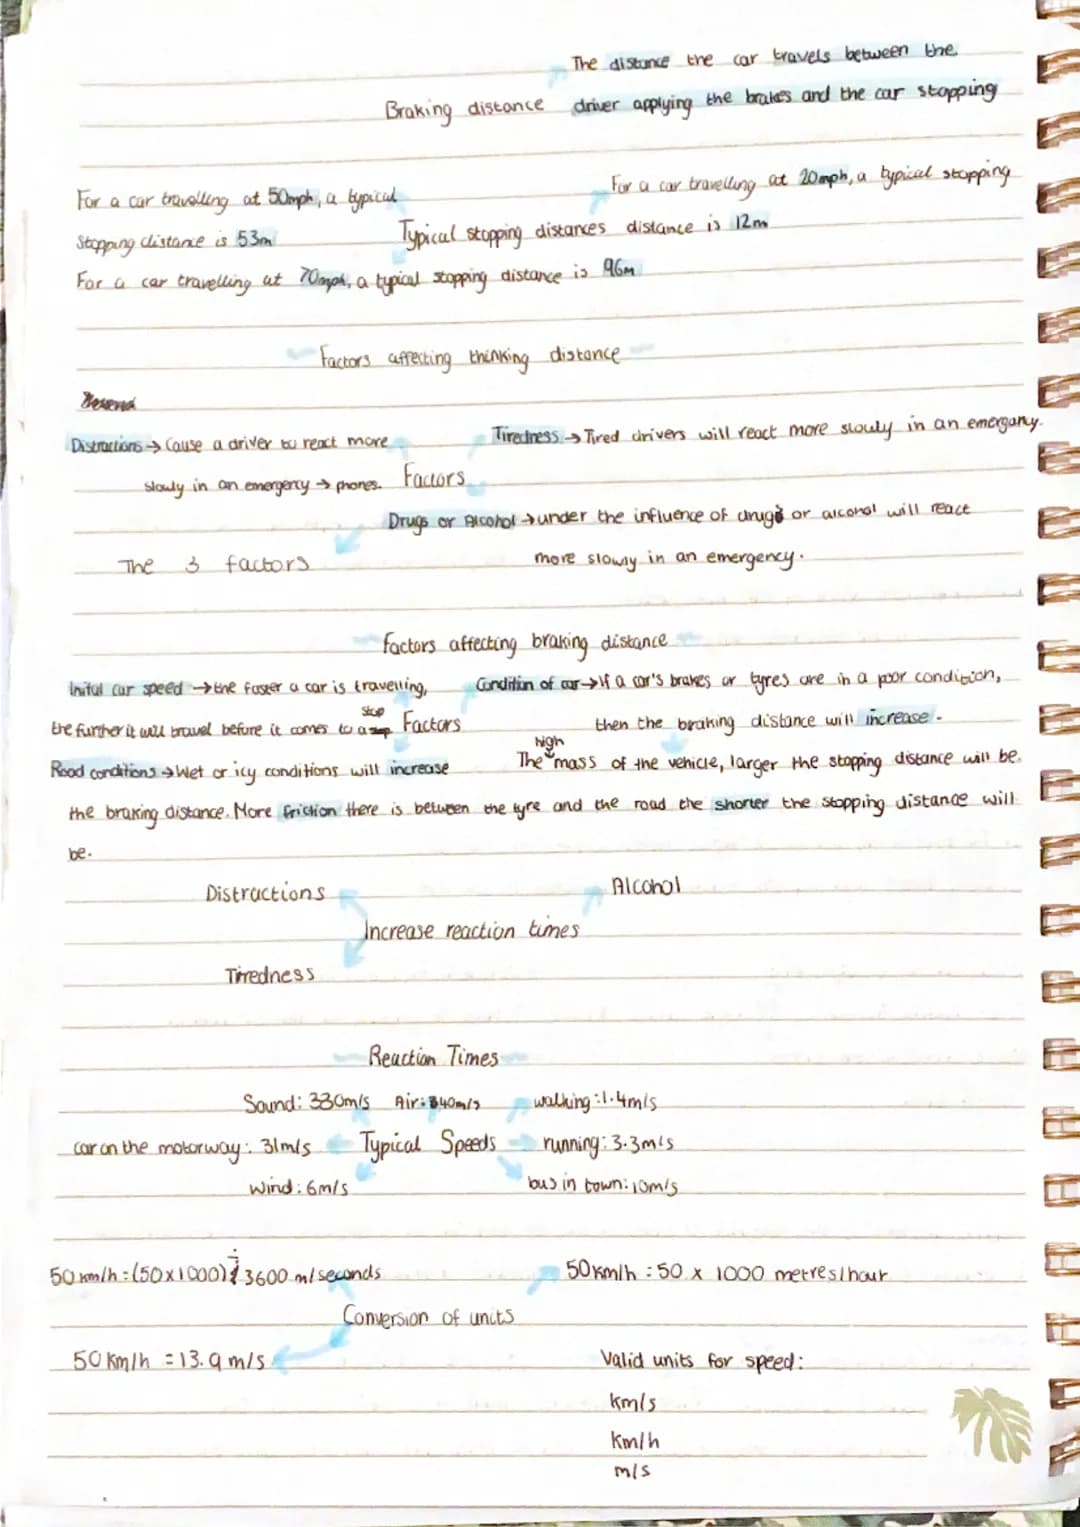 The distance the car travels between the
Braking distance driver applying the brakes and the car stopping
For a car travelling at 50mph, a typical For a car travelling at 20mph, a typical stopping
Stopping distance is 53m Typical stopping distances distance is 12m
For a car travelling at 70mph, a typical stopping distance is 96m
Factors affecting thinking distance
Distractions → Cause a driver to react more Tiredness → Tired drivers will react more slowly in an emergany.
slowly in an emergency → phones. Factors
Drugs or Alcohol → under the influence of drugs or alcohol will react
The 3 factors more slowly in an emergency.
Factors affecting braking distance
Initial car speed → the faster a car is travelling, Condition of car → If a car's brakes or tyres are in a poor condition,
the further it will travel before it comes to a stop Factors then the braking distance will increase.
Road conditions → Wet or icy conditions will increase The high mass of the vehicle, larger the stopping distance will be.
the braking distance. More friction there is between the tyre and the road the shorter the stopping distance will
be.
Distractions Alcohol
Increase reaction times
Tiredness
Reaction Times
Sound: 330m/s Air: 340m/s walking: 1.4m/s
car on the motorway: 31m/s Typical Speeds running: 3.3m/s
Wind: 6m/s bus in town: 10m/s
50 km/h = (50x1000) ÷ 3600 m/seconds 50 km/h = 50 x 1000 metres/hour
Conversion of units
50 km/h = 13.9 m/s Valid units for speed:
km/s
km/h
m/s